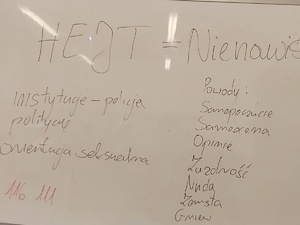 HEJT = Nienawiś
Instytucje - policja
politycy
orientacja seksualna
116 111
Powody:
Samopoczucie
Samoocena
Opinie
Zazdrość
Nuda
Zemsta
Gniew